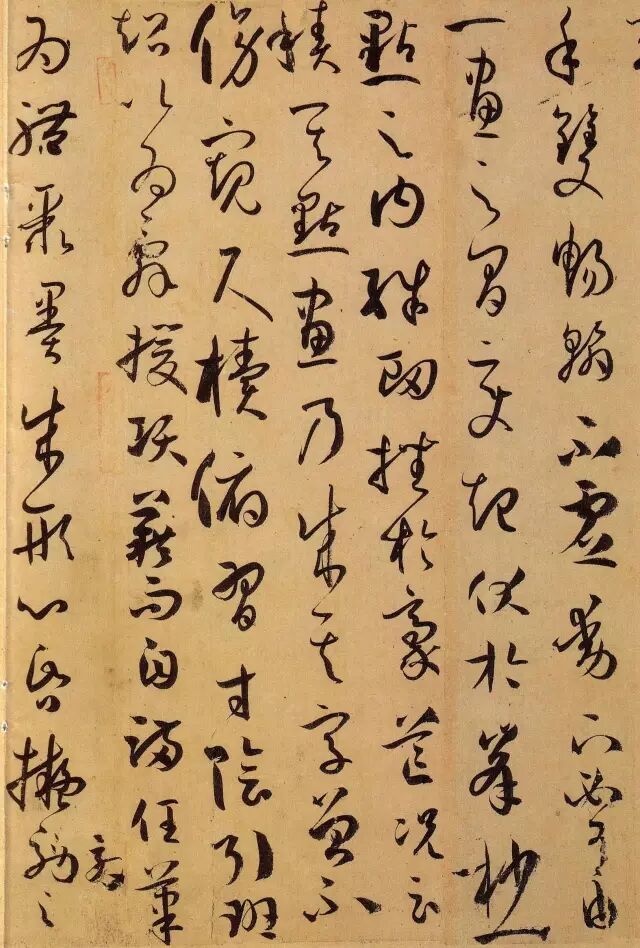 手雙暢翰不虛動下必有由
一畫之間變起伏於峯杪一
點之內殊衂挫於豪芒況云
積其點畫乃成其字曾不
傍窺尺牘俯習寸陰引班
超以為辭援項籍而自滿任筆
為體聚墨成形心昏擬效之